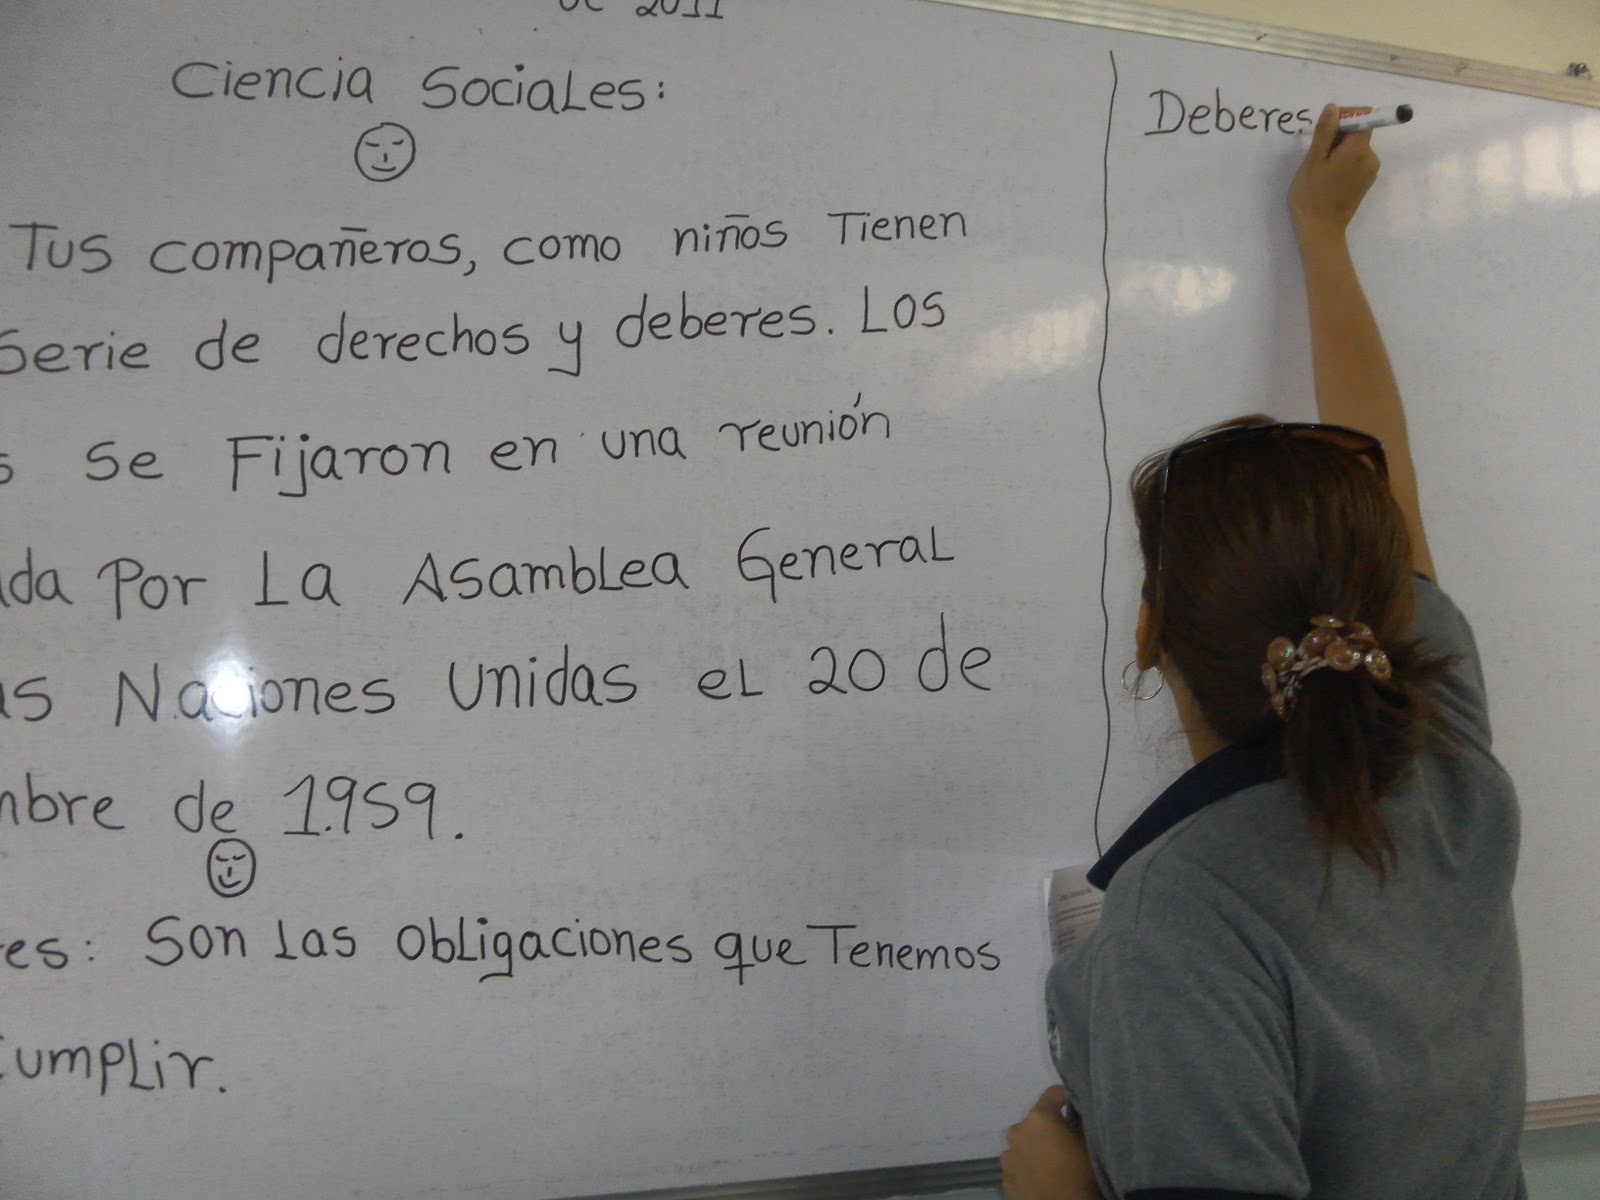 de 2011
Ciencia Sociales:
Tus compañeros, como niños Tienen
Serie de derechos y deberes. Los
s se Fijaron en una reunión
da por La Asamblea General
as Naciones Unidas el 20 de
mbre de 1.959.
es: Son las obligaciones que Tenemos
Cumplir.
Deberes